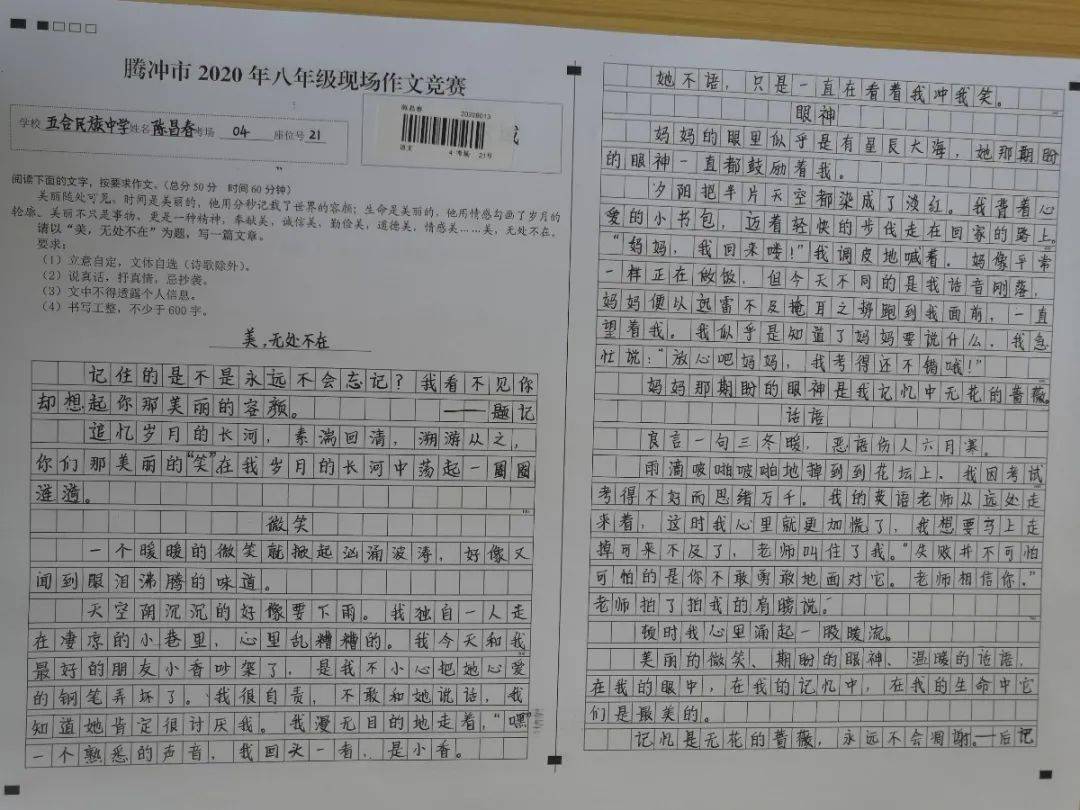 腾冲市 2020 年八年级现场作文竞赛
学校 五合民族中学 姓名 陈昌春 考场 04 座位号 21
陈昌春
语文 4 考场 21号
阅读下面的文字，按要求作文。（总分 50 分 时间 60 分钟）
美丽随处可见。时间是美丽的，他用分秒记载了世界的容颜；生命是美丽的，他用情感勾画了岁月的
轮廓。美丽不只是事物，更是一种精神，奉献美，诚信美，勤俭美，道德美，情感美……美，无处不在。
请以“美，无处不在”为题，写一篇文章。
要求：
（1）立意自定，文体自选（诗歌除外）。
（2）说真话，抒真情，忌抄袭。
（3）文中不得透露个人信息。
（4）书写工整，不少于 600 字。
美，无处不在
记住的是不是永远不会忘记？我看不见你
却想起你那美丽的容颜。 ——题记
追忆岁月的长河，素湍回清，溯游从之，
你们那美丽的“笑”在我岁月的长河中荡起一圈圈
涟漪。
微笑
一个暖暖的微笑就掀起汹涌波涛，好像又
闻到眼泪沸腾的味道。
天空阴沉沉的好像要下雨。我独自一人走
在凄凉的小巷里，心里乱糟糟的。我今天和我
最好的朋友小香吵架了，是我不小心把她心爱
的钢笔弄坏了。我很自责，不敢和她说话，我
知道她肯定很讨厌我。我漫无目的地走着，“嘿”
一个熟悉的声音，我回头一看，是小香。
她不语，只是一直在看着我冲我笑。
眼神
妈妈的眼里似乎是有星辰大海，她那期盼
的眼神一直都鼓励着我。
夕阳把半片天空都染成了淡红。我背着心
爱的小书包，迈着轻快的步伐走在回家的路上。
“妈妈，我回来喽！”我调皮地喊着。妈像平常
一样正在做饭，但今天不同的是我话音刚落，
妈妈便以迅雷不及掩耳之势跑到我面前，一直
望着我。我似乎是知道了妈妈要说什么，我急
忙说：“放心吧妈妈，我考得还不错哦！”
妈妈那期盼的眼神是我记忆中无花的蔷薇。
话语
良言一句三冬暖，恶语伤人六月寒。
雨滴啵啪啵啪地掉到到花坛上，我因考试
考得不好而思绪万千。我的英语老师从远处走
来着，这时我心里就更加慌了，我想要马上走
掉可来不及了，老师叫住了我。“失败并不可怕
可怕的是你不敢勇敢地面对它。老师相信你。”
老师拍了拍我的肩膀说。
顿时我心里涌起一股暖流。
美丽的微笑、期盼的眼神、温暖的话语，
在我的眼中，在我的记忆中，在我的生命中它
们是最美的。
记忆是无花的蔷薇，永远不会凋谢。—后记